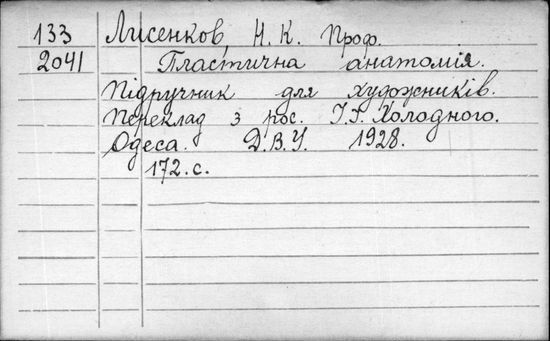 133 Лисенков, Н. К. Проф.
2041 Пластична анатомія.
Підручник для художників.
Переклад з рос. І. Г. Холодного.
Одеса. Д.В.У. 1928.
172.с.